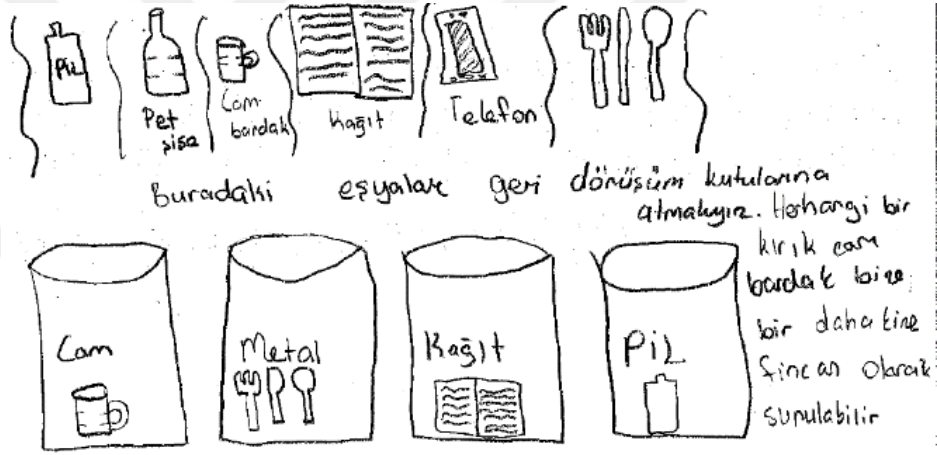 PiL
Pet şişe
Cam bardak
Kağıt
Telefon
buradaki eşyaları geri dönüşüm kutularına
atmalıyız. Herhangi bir
kırık cam
bardak bize
bir dahakine
fincan olarak
sunulabilir
Cam
Metal
Kağıt
PiL